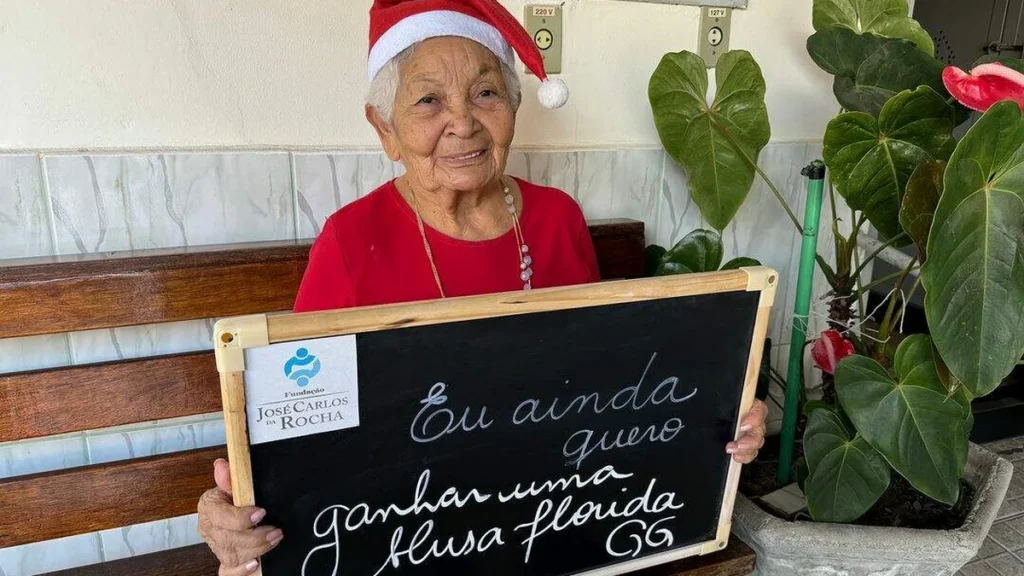 220 V
127 V
Fundação
JOSÉ CARLOS
DA ROCHA
Eu ainda
quero
ganhar uma
blusa florida
GG